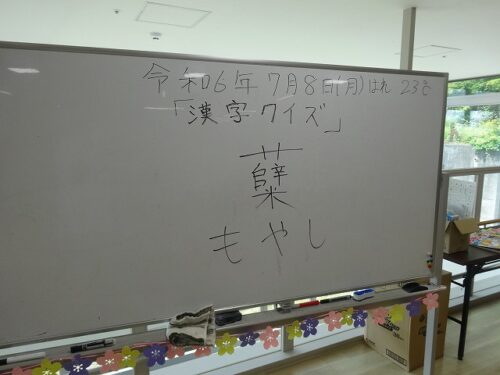 令和6年 7月8日(月)はれ 23℃
「漢字クイズ」
蘖
もやし